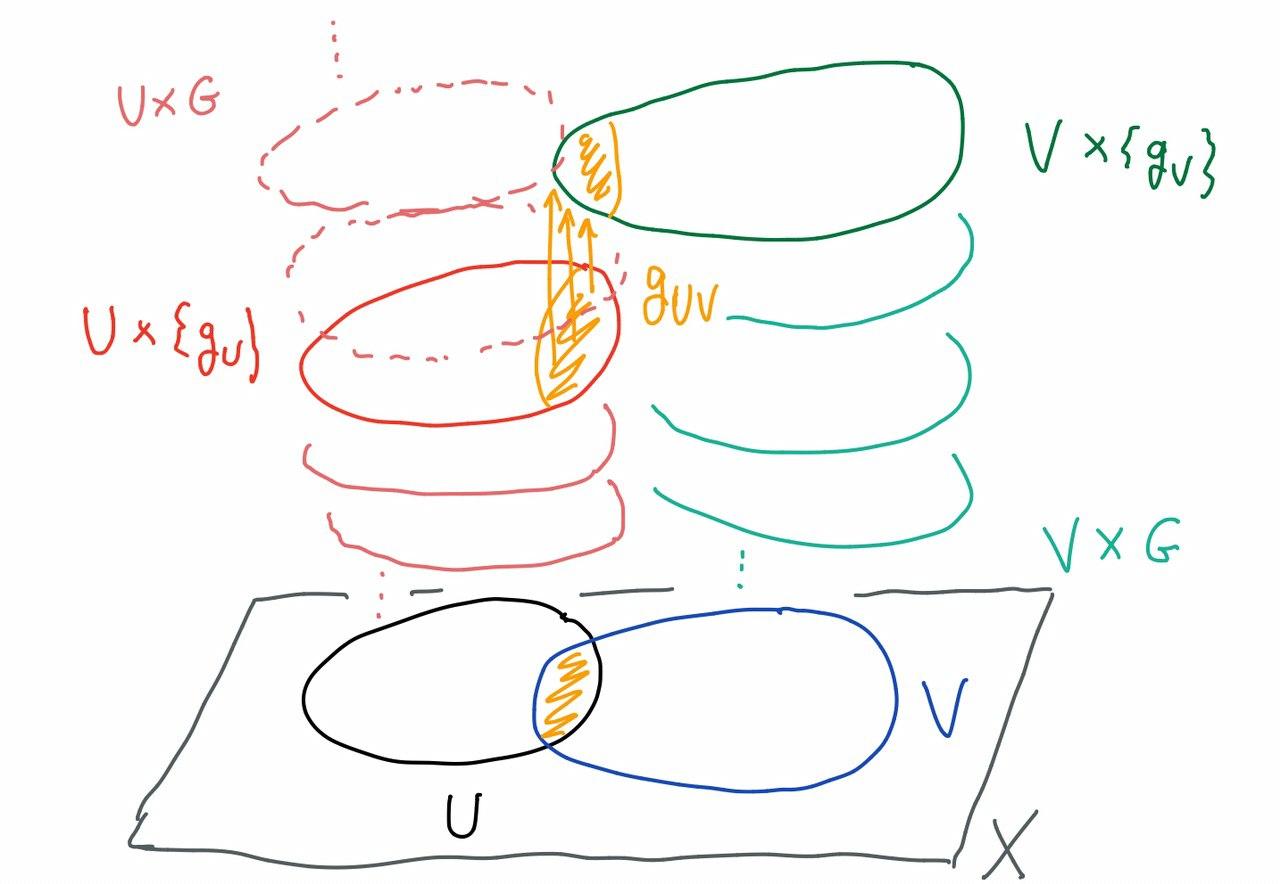 U×G
V×{g_V}
U×{g_U}
g_UV
V×G
V
U
X